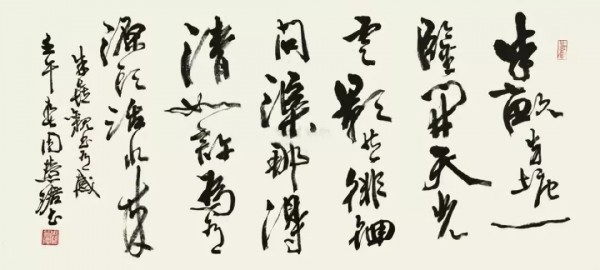 半畝方塘一
鑑開天光
雲影共徘徊
問渠那得
清如許為有
源頭活水來
朱熹觀書有感
壬午春周慧珺書